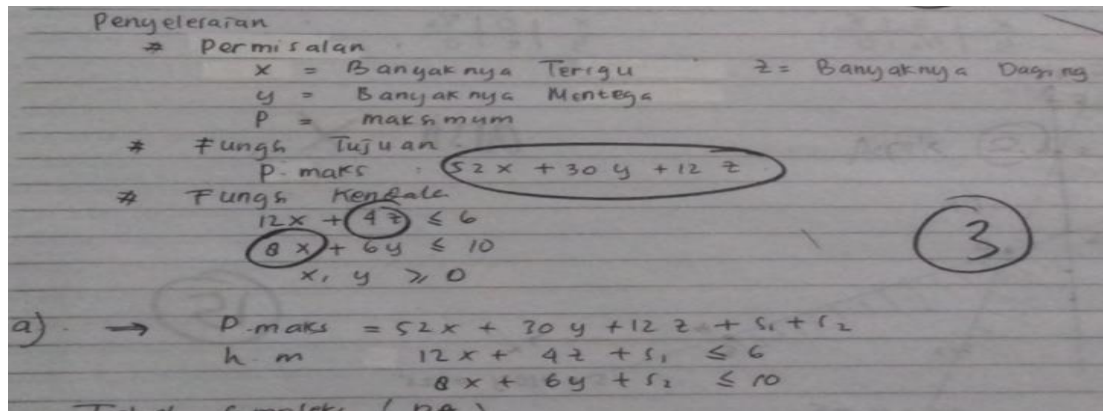 Penyelesaian
* Permisalan
x = Banyaknya Terigu z = Banyaknya Daging
y = Banyaknya Mentega
P = maksimum
* Fungsi Tujuan
P. maks : 52x + 30y + 12z
* Fungsi Kendala
12x + 4z ≤ 6
8x + 6y ≤ 10
x, y ≥ 0
3
a). → P.maks = 52x + 30y + 12z + s₁ + s₂
h m 12x + 4z + s₁ ≤ 6
8x + 6y + s₂ ≤ 10